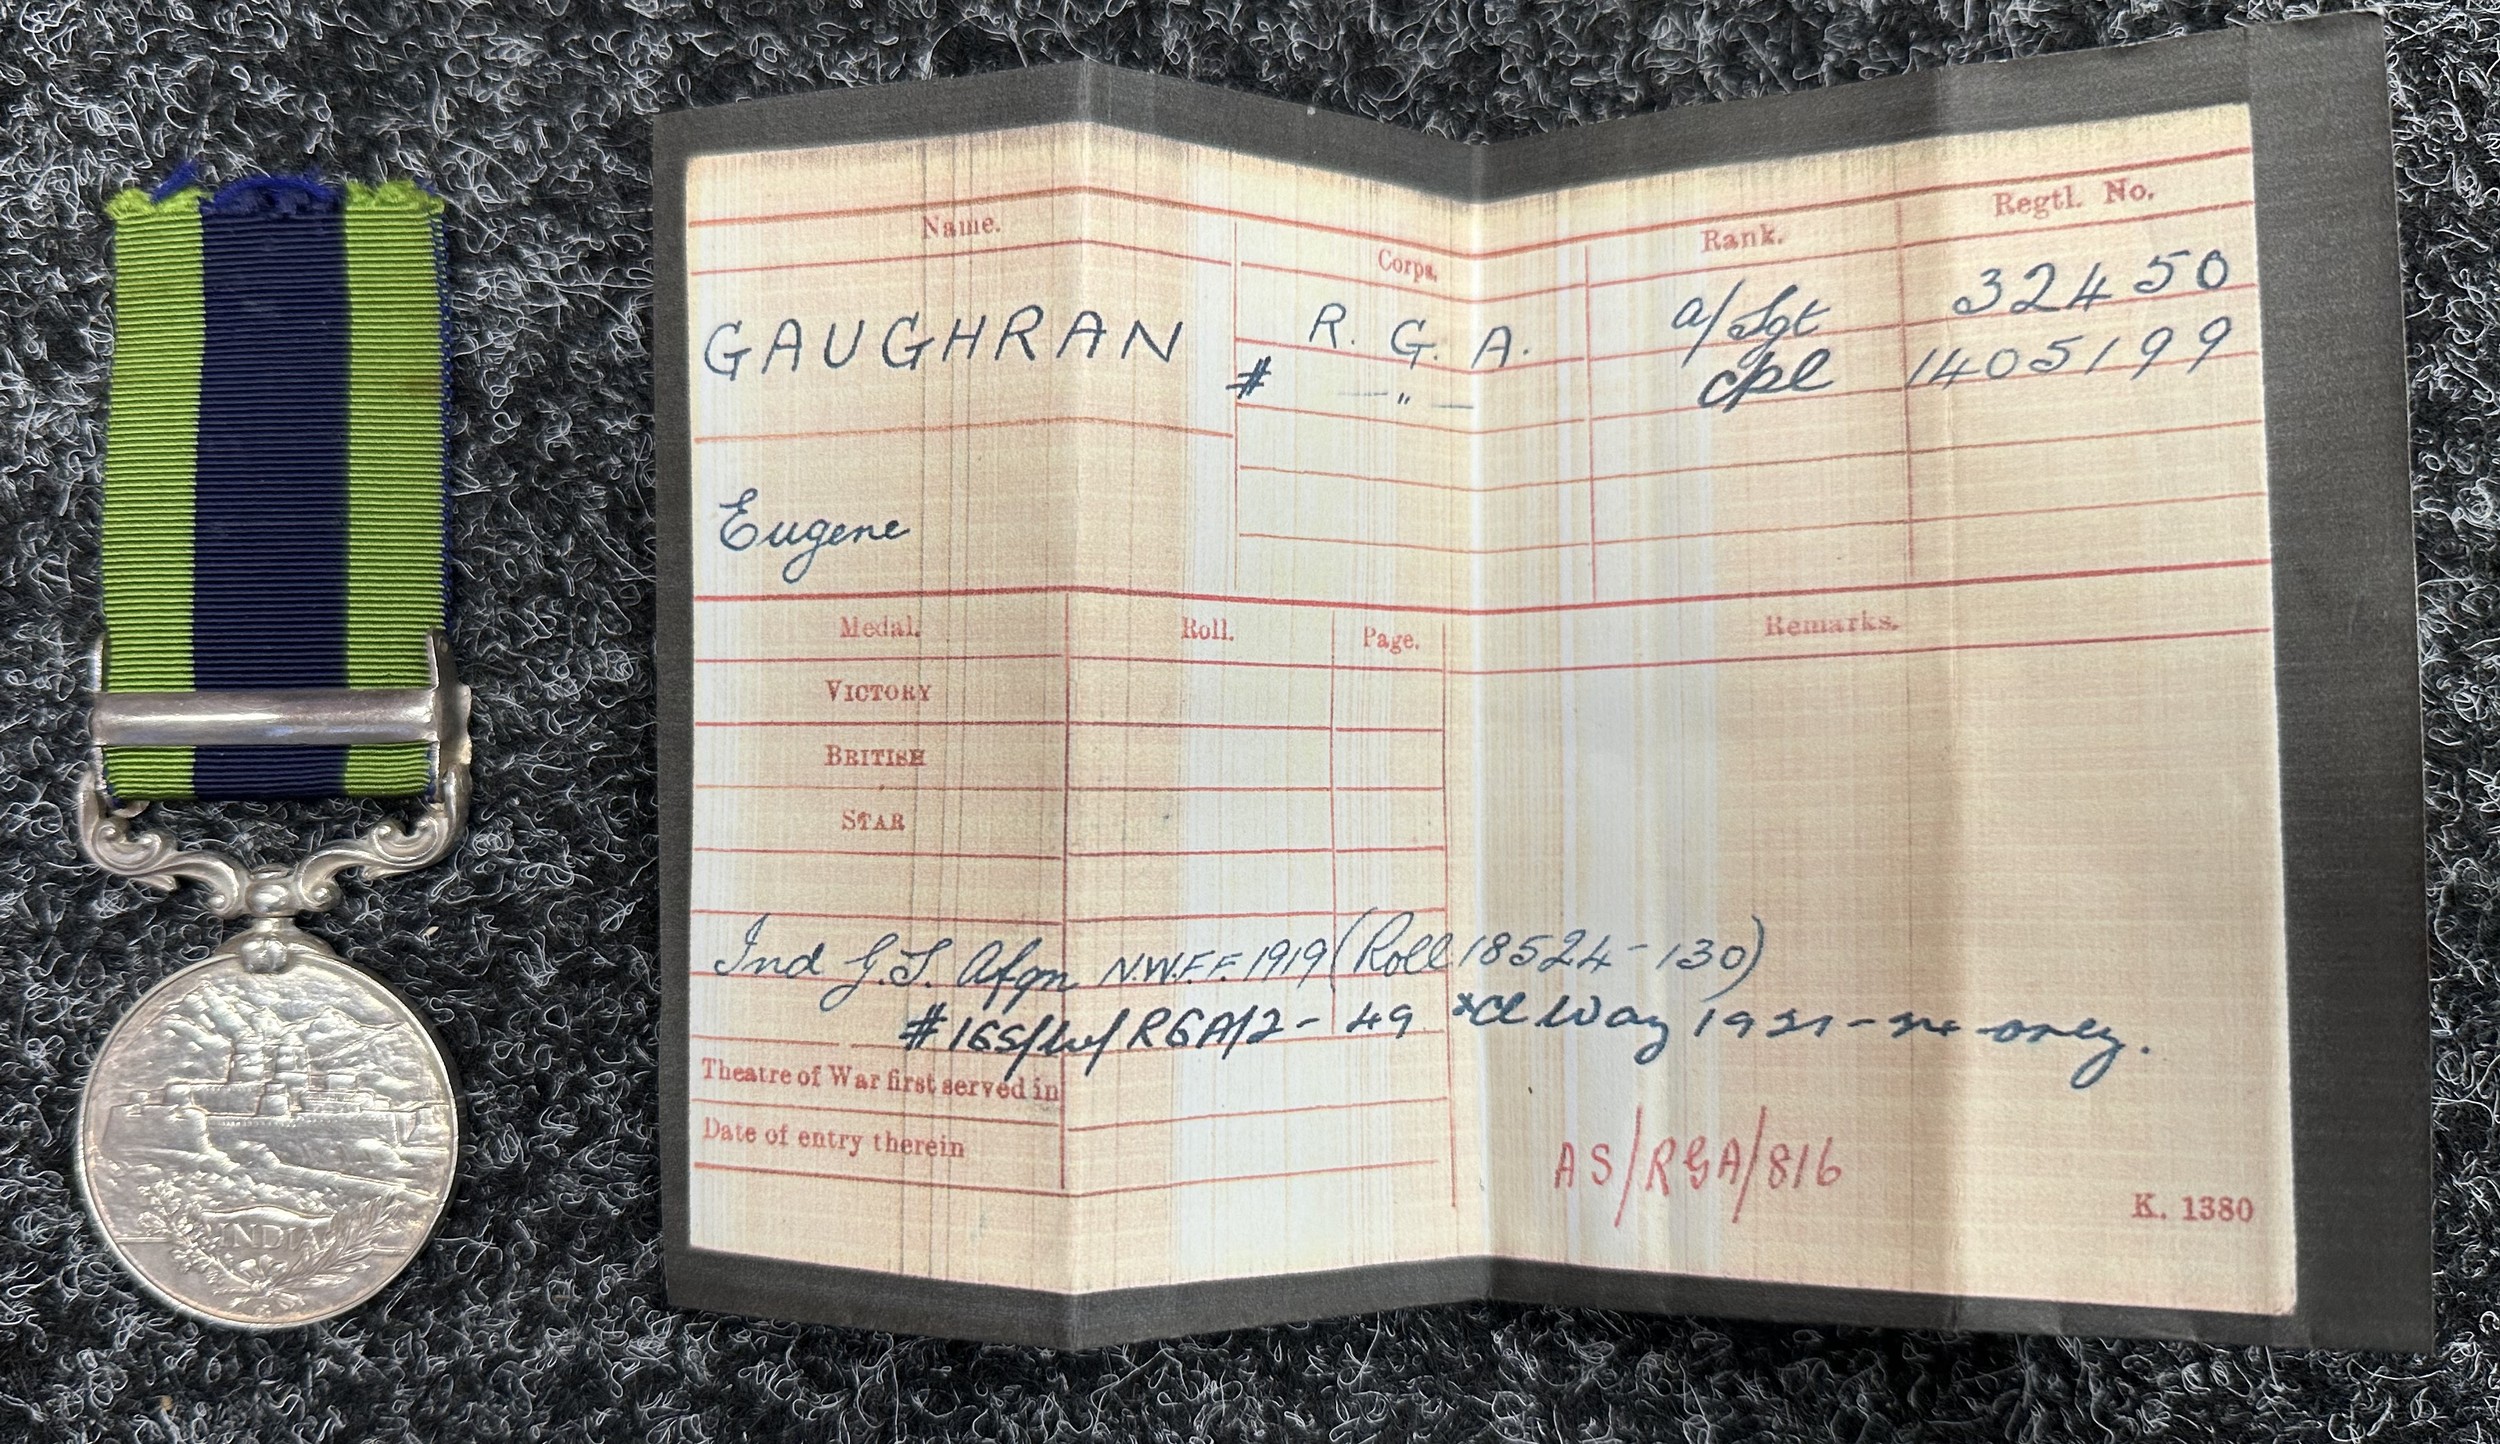 INDIA
Name.
Corps.
Rank.
Regtl. No.
GAUGHRAN
R. G. A.
a/Sgt
32450
# — " —
Cpl
1405199
Eugene
Medal.
Roll.
Page.
Remarks.
VICTORY
BRITISH
STAR
Ind G.S. Afgn N.W.F.F. 1919 (Roll 18524-130)
RGA/2 - 49 *Cl Waz 1921-24 only.
Theatre of War first served in
Date of entry therein
AS/RGA/816
K. 1380